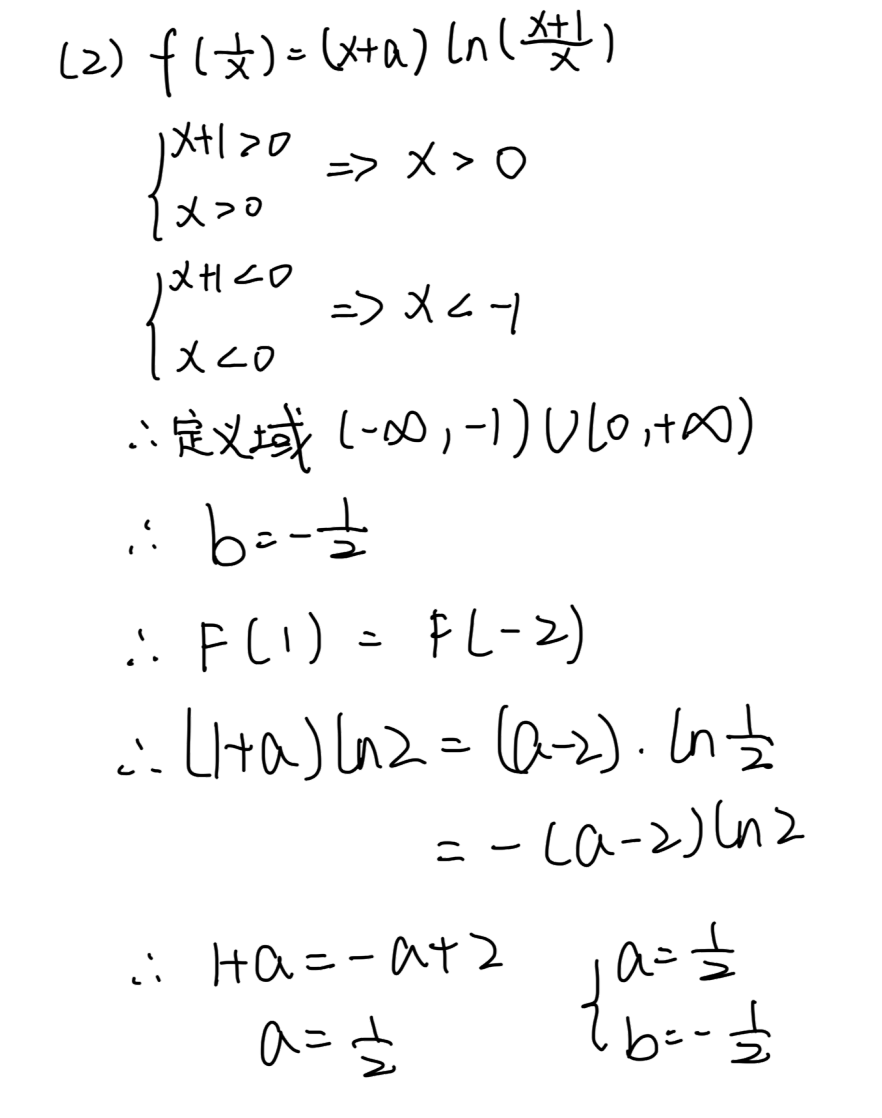 (2) f(1/x)=(x+a) ln((x+1)/x)
{x+1>0
x>0 => x>0
{x+1<0
x<0 => x<-1
∴定义域 (-∞,-1)∪(0,+∞)
∴ b=-1/2
∴ F(1) = F(-2)
∴ (1+a)ln2=(a-2)·ln 1/2
=-(a-2)ln2
∴ 1+a=-a+2 {a=1/2
a=1/2 b=-1/2